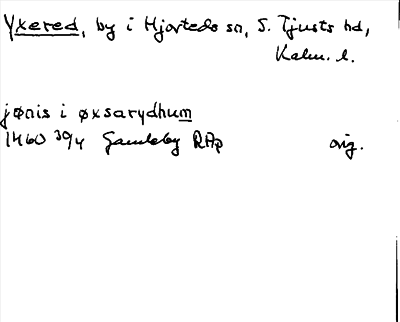 Yxered, by i Hjorteds sn, S. Tjusts hd,
Kalm. l.
jønis i øxsarydhum
1460 30/4 Gamleby RAp orig.